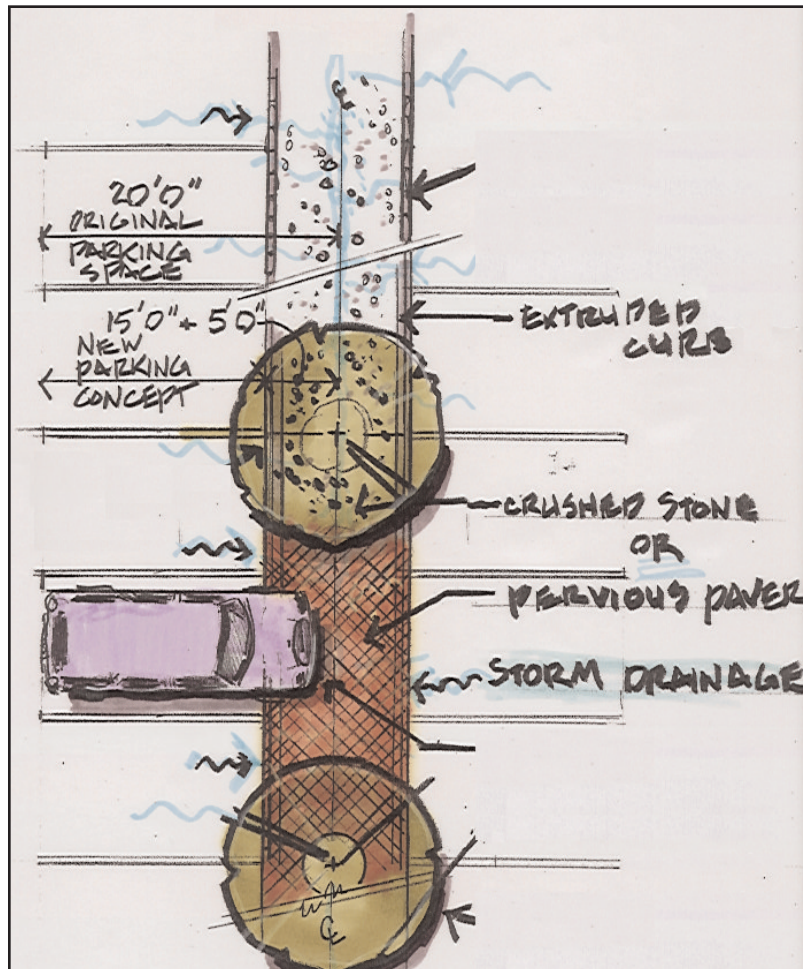 20'0"
ORIGINAL
PARKING
SPACE
15'0" + 5'0"
NEW
PARKING
CONCEPT
EXTRUDED
CURB
CRUSHED STONE
OR
PERVIOUS PAVER
STORM DRAINAGE
℄